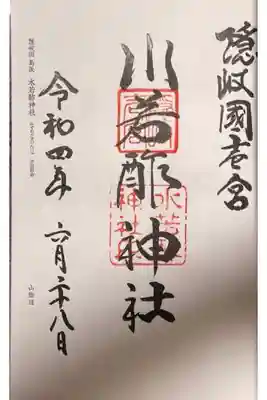 隠岐國壱宮
水若酢神社
令和四年 六月二十八日
隠岐国 島後 水若酢神社
山陰道